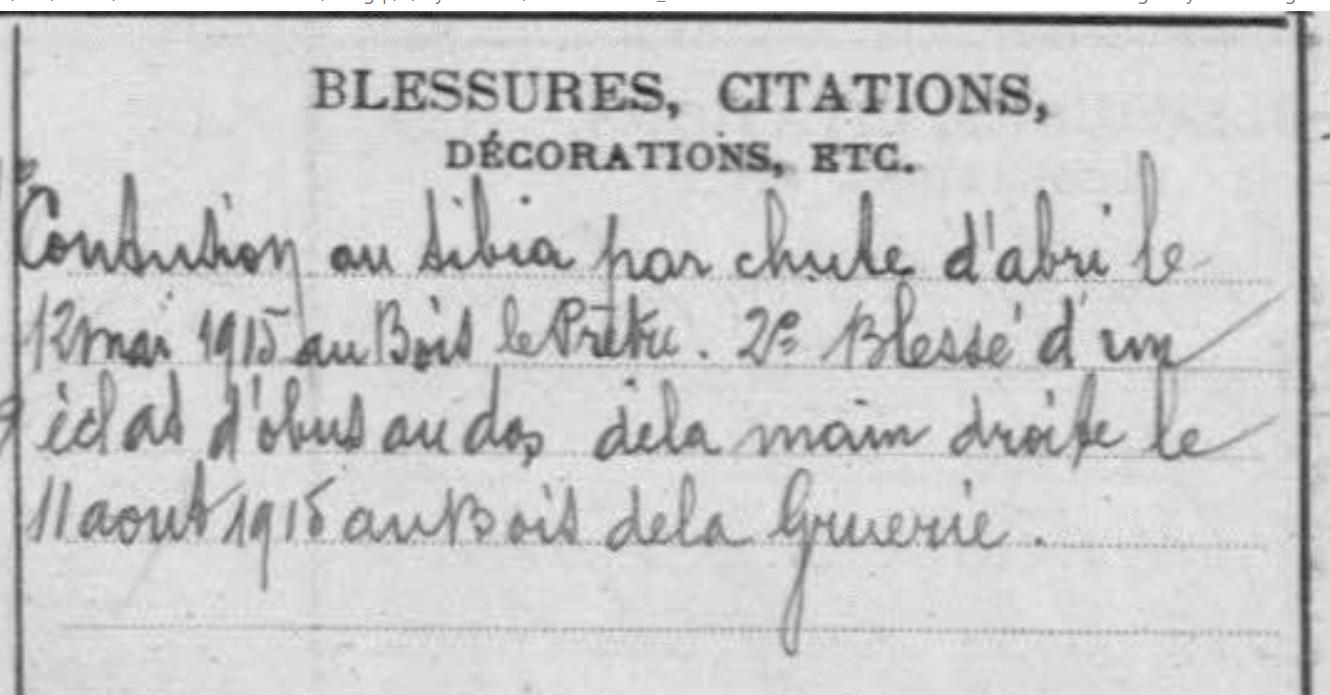 BLESSURES, CITATIONS,
DÉCORATIONS, ETC.
Contusion au tibia par chute d'abri le
12 mai 1915 au Bois le Prêtre. 2º Blessé d'un
éclat d'obus au dos de la main droite le
11 aout 1915 au Bois de la Gruerie.